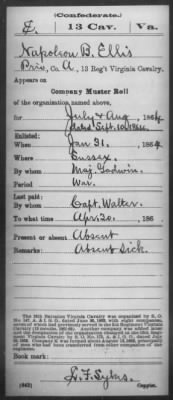 (Confederate.)
E. 13 Cav. Va.
Napoleon B. Ellis
Priv., Co. A, 13 Reg't Virginia Cavalry.
Appears on
Company Muster Roll
of the organization named above,
for July & Aug, 1864
dated Sept. 10, 1864.
Enlisted:
When Jan 31, 1864
Where Sussex.
By whom Maj. Godwin.
Period War.
Last paid:
By whom Capt. Walter.
To what time Apr. 20, 186
Present or absent Absent
Remarks: Absent Sick.
Book mark:
(642) L. F. Sykes, Copyist.